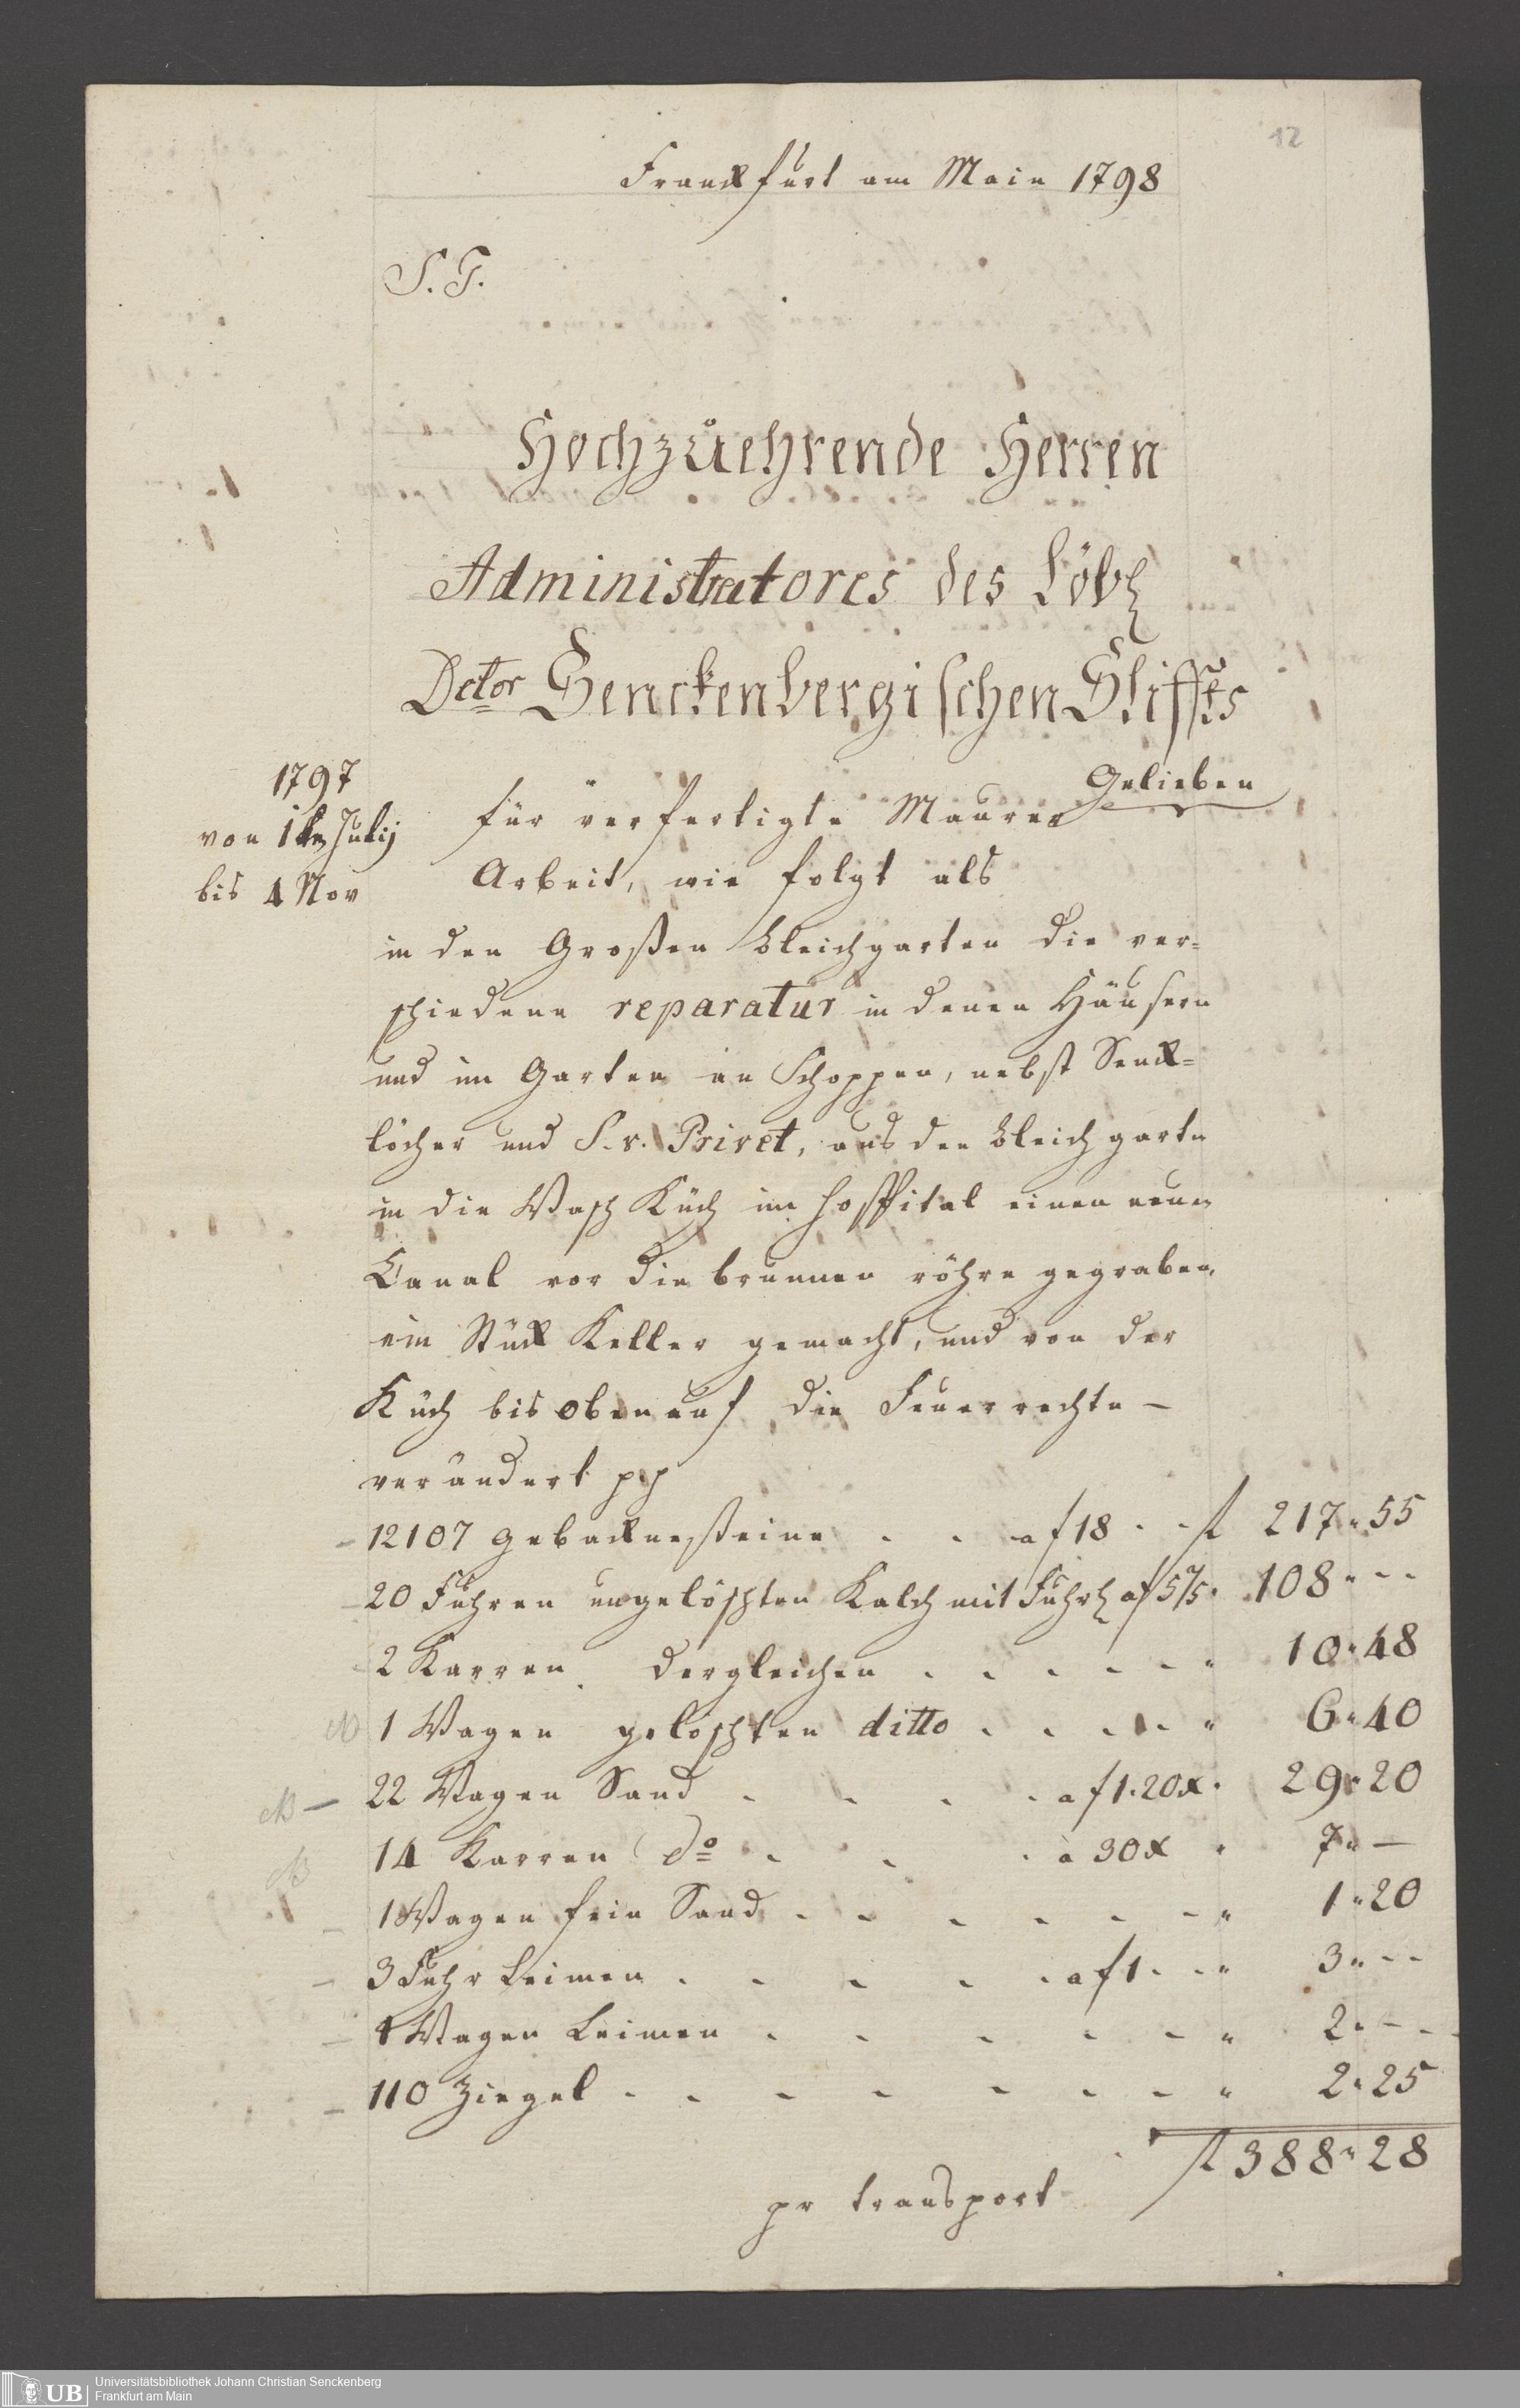 12
Franckfurt am Main 1798
S. T.
Hochzuehrende Herren
Administratores des Löbl
Dctor Senckenbergischen Stiffts
Gelieben
1797
von 1ten Julij
bis 4 Nov
für verfertigte Maurer
Arbeit, wie folgt als
in den Großen Bleichgarten die ver=
schiedene reparatur in denen Häusern
und im Garten an Schoppen, nebst Senck=
löcher und S. v. Privet, aus den Bleichgarten
in die Wasch Küch im Hospital einen neuen
Canal vor die brunnen röhre gegraben,
ein Stück Keller gemacht, und von der
Küch bis oben auf die Feuerrechte –
verändert pp
12107 gebackne steine . . a f 18 . . fl 217 " 55
20 Fuhren ungelöschten Kalch mit Fuhrl a f 5 2/5 " 108 " - -
2 Karren dergleichen . . . . . " 10 " 48
1 Wagen gelöschten ditto . . . . " 6 " 40
22 Wagen Sand . . . . a f 1 . 20 x " 29 " 20
14 Karren do . . . à 30 x " 7 " —
1 Wagen fein Sand . . . . . . " 1 " 20
3 Fuhr Leimen . . . . . a f 1 . . " 3 " - -
1 Wagen Leimen . . . . . " 2 " - -
110 Ziegel . . . . . . . " 2 " 25
fl 388 " 28
pr transport
UB
Universitätsbibliothek Johann Christian Senckenberg
Frankfurt am Main